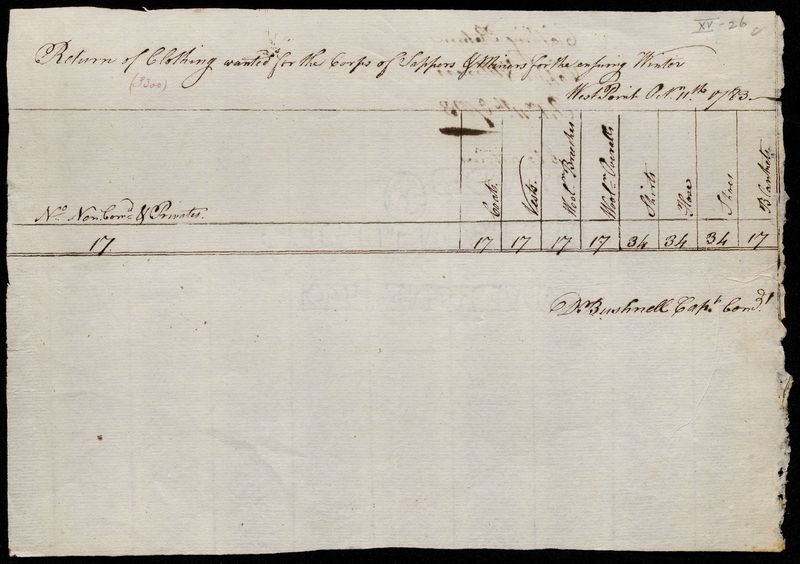 XV-26
Return of Clothing wanted for the Corps of Sappers & Miners for the ensuing Winter
(3300)
West Point Octr. 11th. 1783
No. Non Comd. & Privates. Coats. Vests. Wooln. Breeches Wooln. Overalls Shirts Hose Shoes Blankets.
17 17 17 17 17 34 34 34 17
Dd. Bushnell Capt. Comdt.